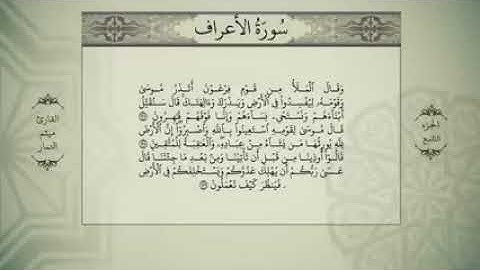 سُورَةُ الأَعْرَاف
وَقَالَ ٱلْمَلَأُ مِن قَوْمِ فِرْعَوْنَ أَتَذَرُ مُوسَىٰ
وَقَوْمَهُۥ لِيُفْسِدُوا۟ فِى ٱلْأَرْضِ وَيَذَرَكَ وَءَالِهَتَكَ قَالَ سَنُقَتِّلُ
أَبْنَآءَهُمْ وَنَسْتَحْىِۦ نِسَآءَهُمْ وَإِنَّا فَوْقَهُمْ قَٰهِرُونَ ١٢٧
قَالَ مُوسَىٰ لِقَوْمِهِ ٱسْتَعِينُوا۟ بِٱللَّهِ وَٱصْبِرُوٓا۟ إِنَّ ٱلْأَرْضَ
لِلَّهِ يُورِثُهَا مَن يَشَآءُ مِنْ عِبَادِهِۦ وَٱلْعَٰقِبَةُ لِلْمُتَّقِينَ ١٢٨
قَالُوٓا۟ أُوذِينَا مِن قَبْلِ أَن تَأْتِيَنَا وَمِنۢ بَعْدِ مَا جِئْتَنَا قَالَ
عَسَىٰ رَبُّكُمْ أَن يُهْلِكَ عَدُوَّكُمْ وَيَسْتَخْلِفَكُمْ فِى ٱلْأَرْضِ
فَيَنظُرَ كَيْفَ تَعْمَلُونَ ١٢٩
الجزء
التاسع
القارئ
ميثم
التمار